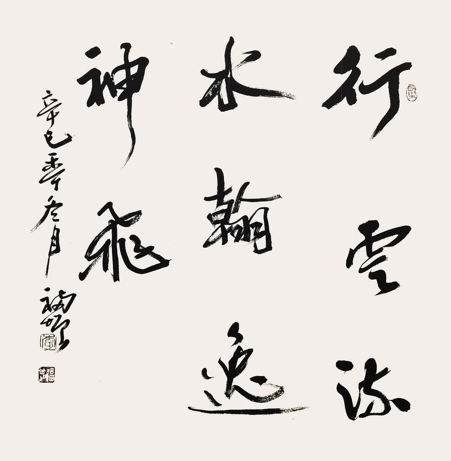 行雲流
水翰逸
神飛
辛巳季冬月